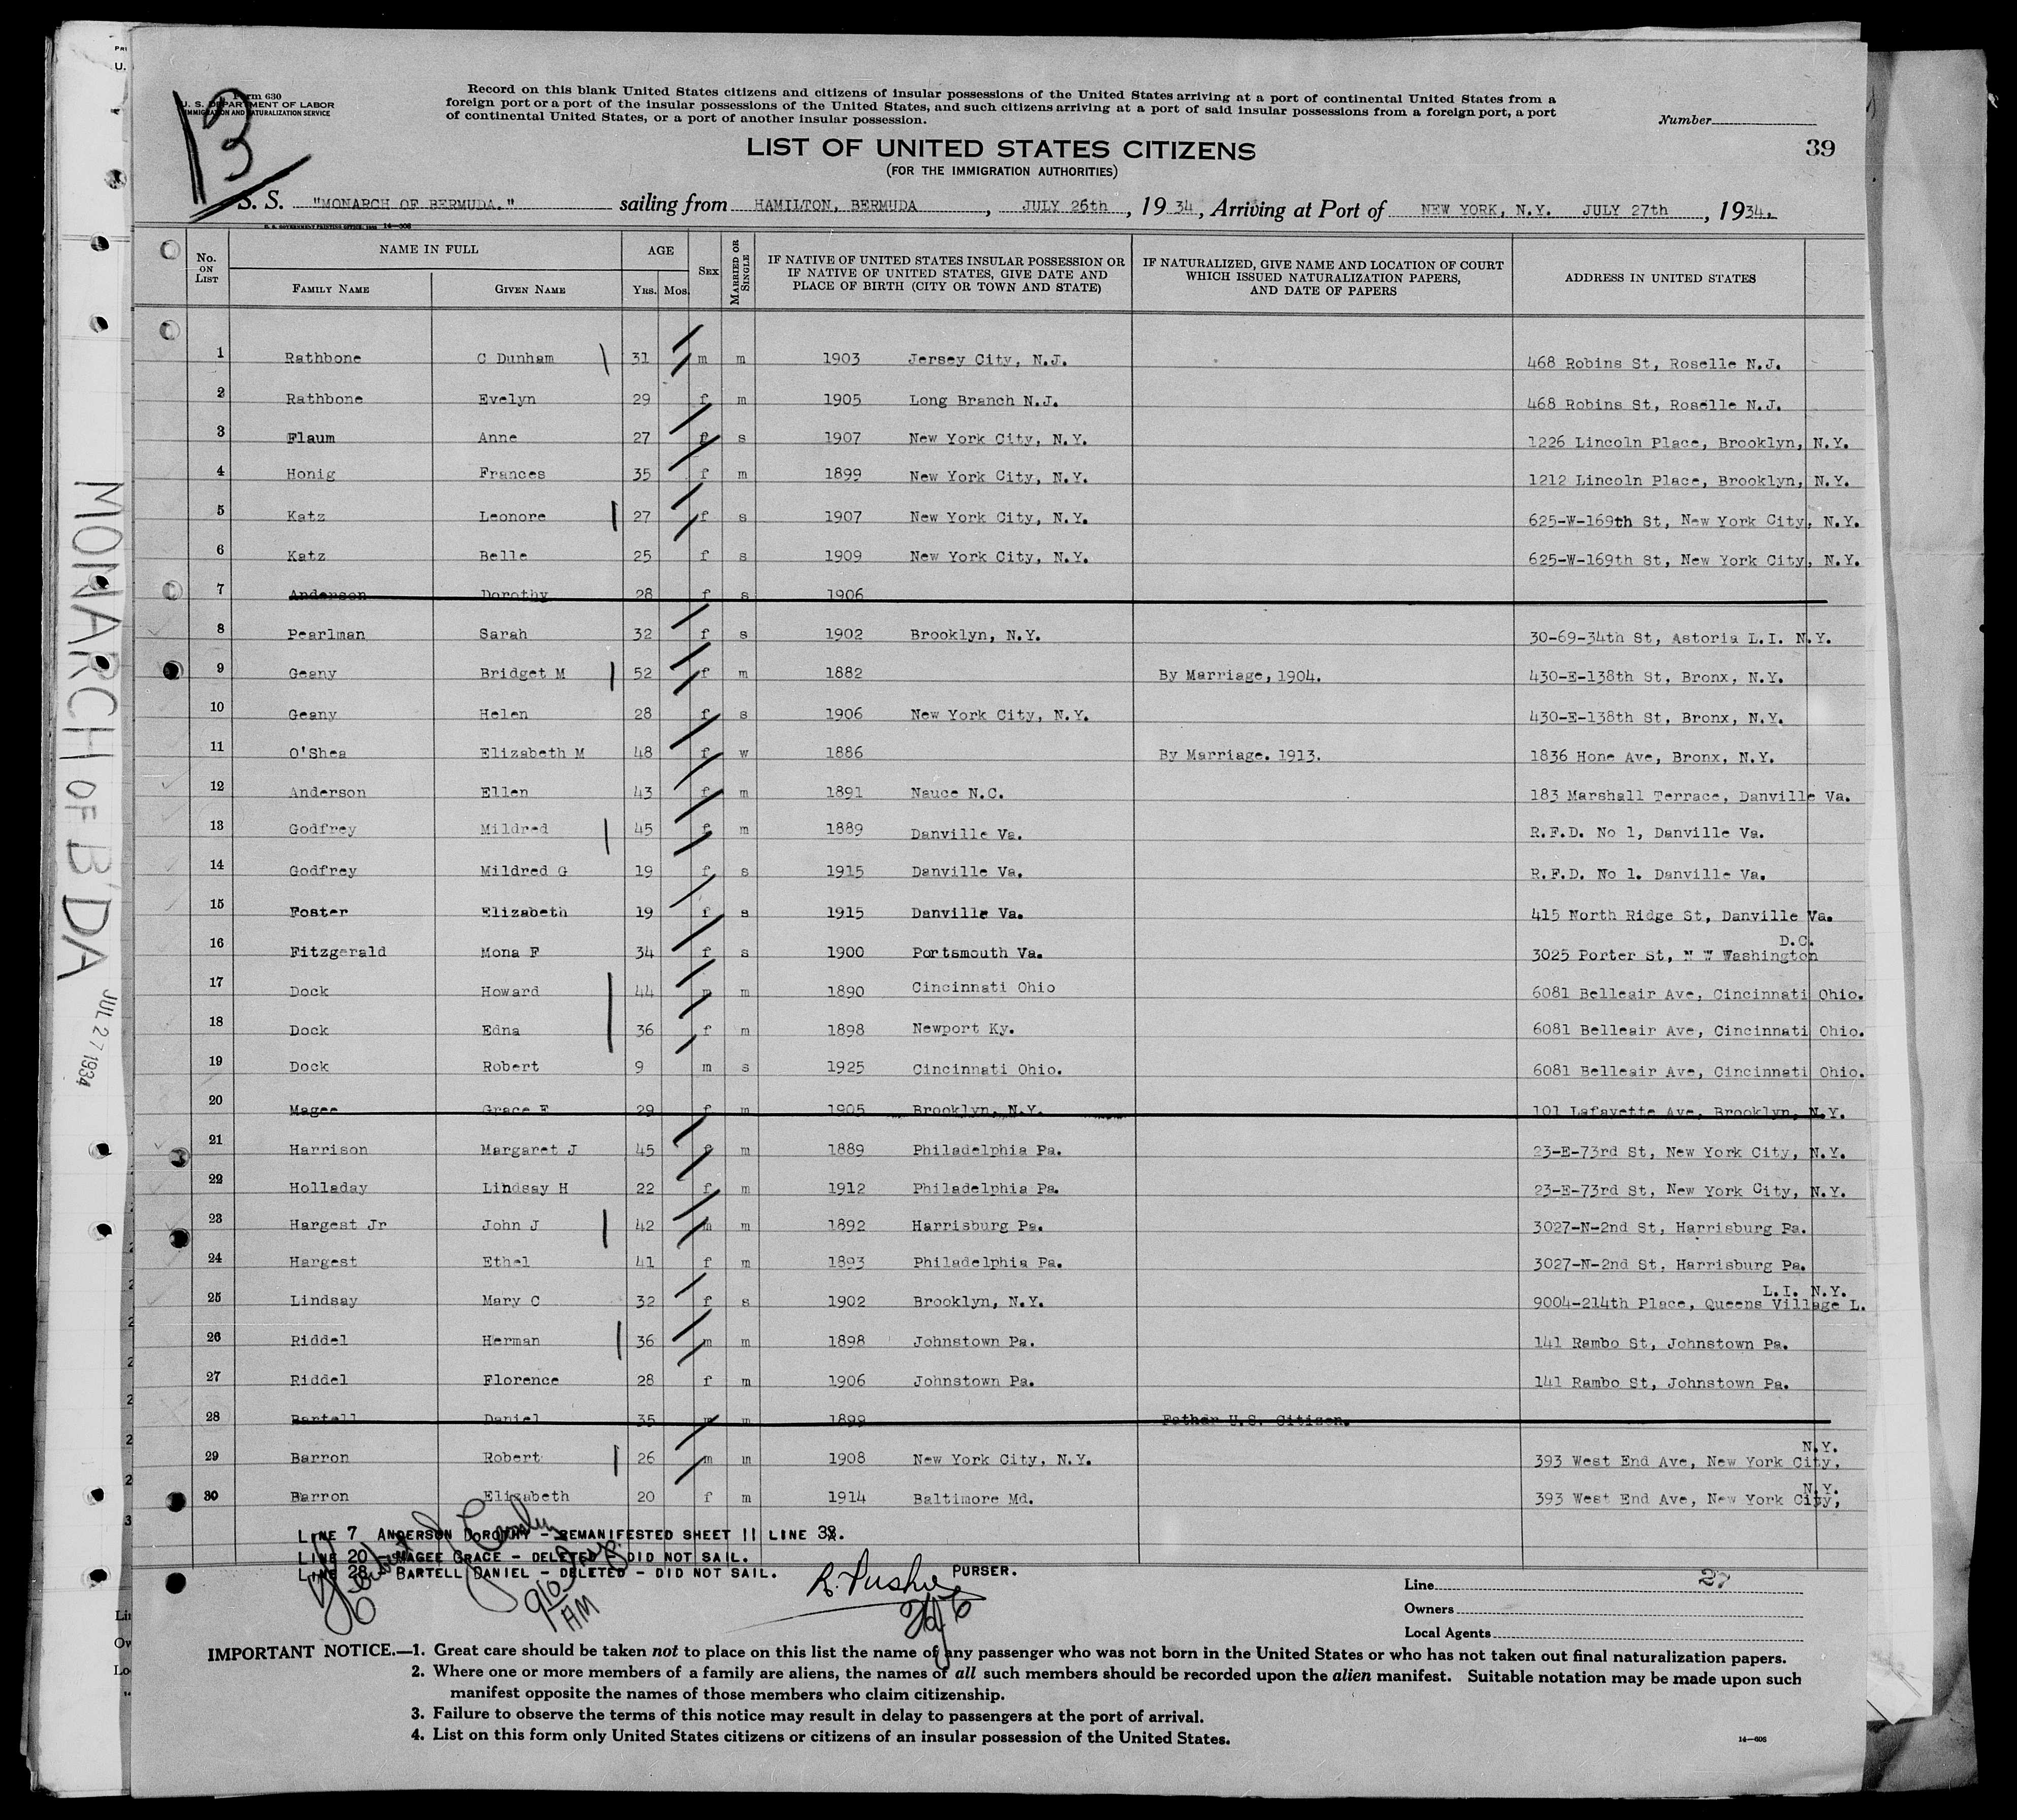 13
Form 630
U. S. DEPARTMENT OF LABOR
IMMIGRATION AND NATURALIZATION SERVICE
Record on this blank United States citizens and citizens of insular possessions of the United States arriving at a port of continental United States from a
foreign port or a port of the insular possessions of the United States, and such citizens arriving at a port of said insular possessions from a foreign port, a port
of continental United States, or a port of another insular possession.
Number
39
LIST OF UNITED STATES CITIZENS
(FOR THE IMMIGRATION AUTHORITIES)
S. S. "MONARCH OF BERMUDA." sailing from HAMILTON, BERMUDA, JULY 26th, 1934, Arriving at Port of NEW YORK, N.Y. JULY 27th, 1934.
No. ON LIST NAME IN FULL FAMILY NAME GIVEN NAME AGE YRS. MOS. SEX MARRIED OR SINGLE IF NATIVE OF UNITED STATES INSULAR POSSESSION OR IF NATIVE OF UNITED STATES, GIVE DATE AND PLACE OF BIRTH (CITY OR TOWN AND STATE) IF NATURALIZED, GIVE NAME AND LOCATION OF COURT WHICH ISSUED NATURALIZATION PAPERS, AND DATE OF PAPERS ADDRESS IN UNITED STATES
1 Rathbone C Dunham 31 m m 1903 Jersey City, N.J. 468 Robins St, Roselle N.J.
2 Rathbone Evelyn 29 f m 1905 Long Branch N.J. 468 Robins St, Roselle N.J.
3 Flaum Anne 27 f s 1907 New York City, N.Y. 1226 Lincoln Place, Brooklyn, N.Y.
4 Honig Frances 35 f m 1899 New York City, N.Y. 1212 Lincoln Place, Brooklyn, N.Y.
5 Katz Leonore 27 f s 1907 New York City, N.Y. 625-W-169th St, New York City, N.Y.
6 Katz Belle 25 f s 1909 New York City, N.Y. 625-W-169th St, New York City, N.Y.
7 Anderson Dorothy 28 f s 1906
8 Pearlman Sarah 32 f s 1902 Brooklyn, N.Y. 30-69-34th St, Astoria L.I. N.Y.
9 Geany Bridget M 52 f m 1882 By Marriage, 1904. 430-E-138th St, Bronx, N.Y.
10 Geany Helen 28 f s 1906 New York City, N.Y. 430-E-138th St, Bronx, N.Y.
11 O'Shea Elizabeth M 48 f w 1886 By Marriage. 1913. 1836 Hone Ave, Bronx, N.Y.
12 Anderson Ellen 43 f m 1891 Nauce N.C. 183 Marshall Terrace, Danville Va.
13 Godfrey Mildred 45 f m 1889 Danville Va. R.F.D. No 1, Danville Va.
14 Godfrey Mildred G 19 f s 1915 Danville Va. R.F.D. No 1. Danville Va.
15 Foster Elizabeth 19 f s 1915 Danville Va. 415 North Ridge St, Danville Va.
16 Fitzgerald Mona F 34 f s 1900 Portsmouth Va. 3025 Porter St, N W Washington D.C.
17 Dock Howard 44 m m 1890 Cincinnati Ohio 6081 Belleair Ave, Cincinnati Ohio.
18 Dock Edna 36 f m 1898 Newport Ky. 6081 Belleair Ave, Cincinnati Ohio.
19 Dock Robert 9 m s 1925 Cincinnati Ohio. 6081 Belleair Ave, Cincinnati Ohio.
20 Magee Grace E 29 f m 1905 Brooklyn, N.Y. 101 Lafayette Ave, Brooklyn, N.Y.
21 Harrison Margaret J 45 f m 1889 Philadelphia Pa. 23-E-73rd St, New York City, N.Y.
22 Holladay Lindsay H 22 f m 1912 Philadelphia Pa. 23-E-73rd St, New York City, N.Y.
23 Hargest Jr John J 42 m m 1892 Harrisburg Pa. 3027-N-2nd St, Harrisburg Pa.
24 Hargest Ethel 41 f m 1893 Philadelphia Pa. 3027-N-2nd St, Harrisburg Pa.
25 Lindsay Mary C 32 f s 1902 Brooklyn, N.Y. 9004-214th Place, Queens Village L. L.I. N.Y.
26 Riddel Herman 36 m m 1898 Johnstown Pa. 141 Rambo St, Johnstown Pa.
27 Riddel Florence 28 f m 1906 Johnstown Pa. 141 Rambo St, Johnstown Pa.
28 Bartell Daniel 35 m m 1899 Father U.S. Citizen.
29 Barron Robert 26 m m 1908 New York City, N.Y. 393 West End Ave, New York City, N.Y.
30 Barron Elizabeth 20 f m 1914 Baltimore Md. 393 West End Ave, New York City, N.Y.
LINE 7 ANDERSON DOROTHY - REMANIFESTED SHEET 11 LINE 38.
LINE 20 - MAGEE GRACE - DELETED - DID NOT SAIL.
LINE 28 - BARTELL DANIEL - DELETED - DID NOT SAIL.
910 AM
PURSER.
Line 27
Owners
Local Agents
IMPORTANT NOTICE.—1. Great care should be taken not to place on this list the name of any passenger who was not born in the United States or who has not taken out final naturalization papers.
2. Where one or more members of a family are aliens, the names of all such members should be recorded upon the alien manifest. Suitable notation may be made upon such
manifest opposite the names of those members who claim citizenship.
3. Failure to observe the terms of this notice may result in delay to passengers at the port of arrival.
4. List on this form only United States citizens or citizens of an insular possession of the United States.
14—606
MONARCH OF B'DA
JUL 27 1934